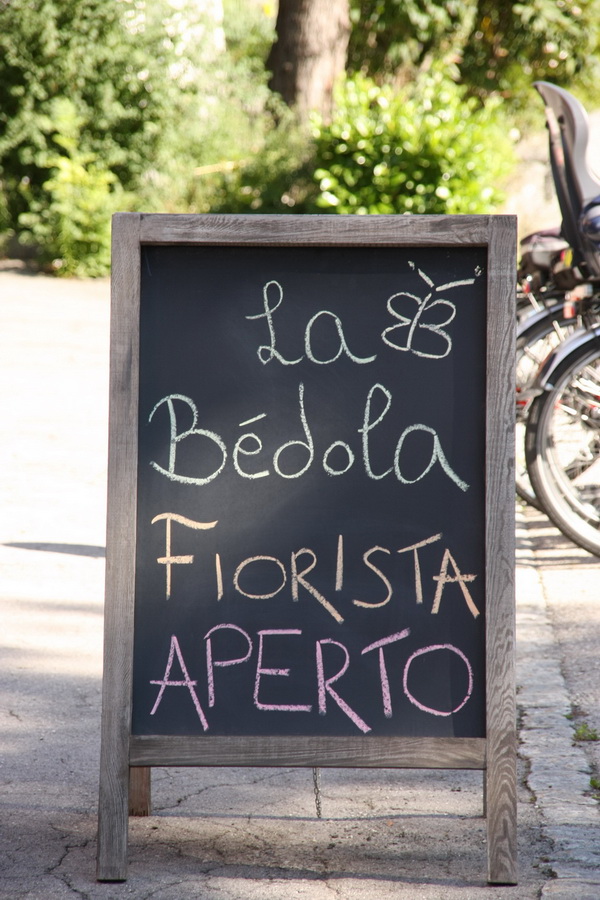 La
Bédola
FIORISTA
APERTO